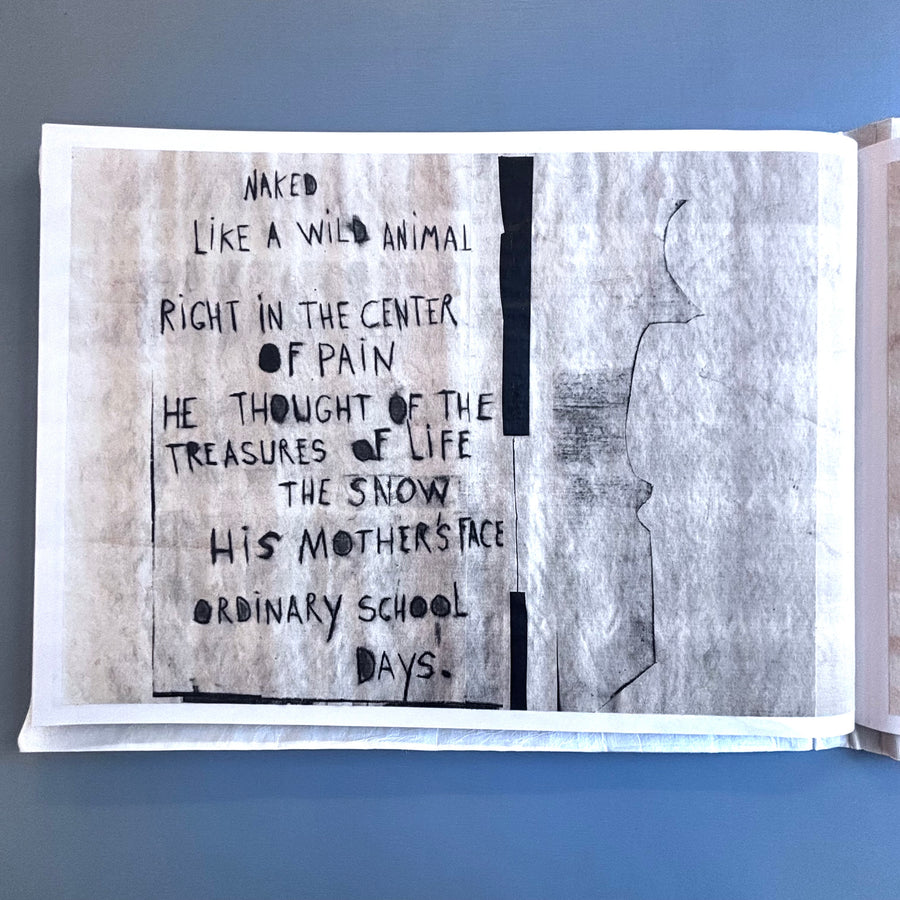 NAKED
LiKE A WiLD ANiMAL
RiGHT iN THE CENTER
OF PAiN
HE THOUGHT OF THE
TREASURES OF LiFE
THE SNOW
HiS MOTHER'S FACE
ORDiNARY SCHOOL
DAYS.